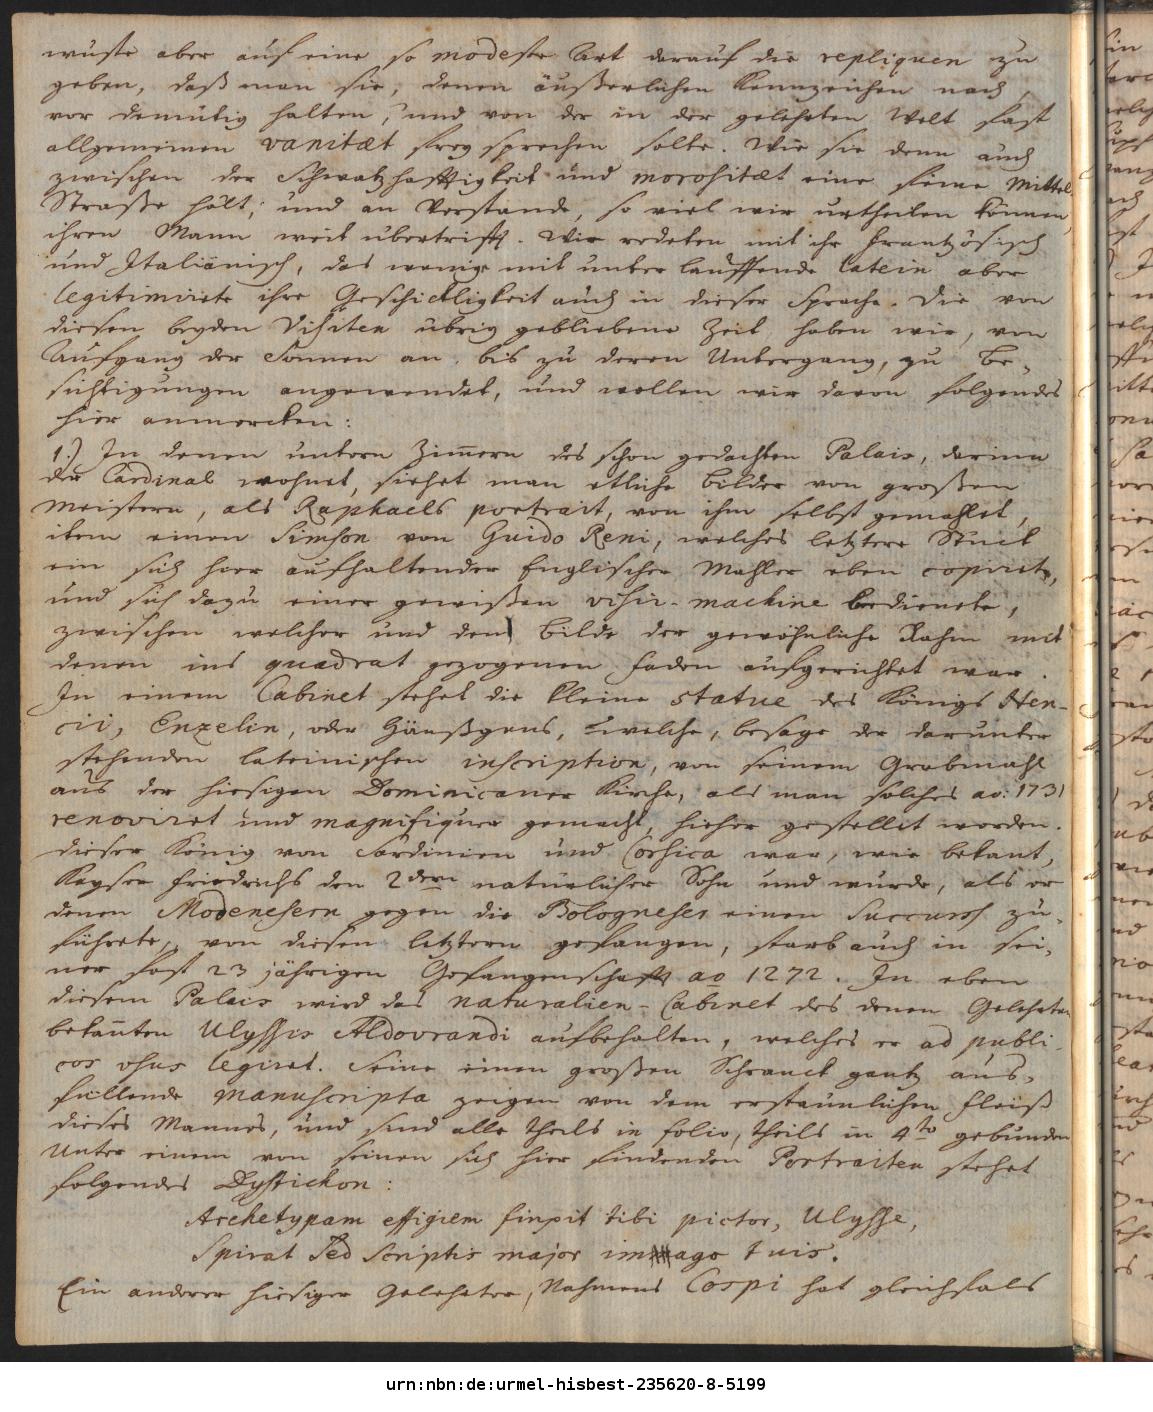 wuste aber auf eine so modeste Art darauf die repliquen zu
geben, daß man sie, denen äußerlichen Kennzeichen nach,
vor demütig halten, und von der in der gelehrten Welt fast
allgemeinen vanitæt frey sprechen solte. Wie sie denn auch
zwischen der Schwatzhafftigkeit und morositæt eine feine Mittel-
Straße hält; und an Verstande, so viel wir urtheilen können,
ihren Mann weit übertrifft. Wir redeten mit ihr Frantzösisch
und Italiänisch, das wenige mit unter lauffende Latein aber
legitimirte ihre Geschickligkeit auch in dieser Sprache. Die von
diesen beyden Visiten übrig gebliebene Zeit haben wir, von
Aufgang der Sonnen an bis zu deren Untergang, zu Be-
sichtigungen angewendet, und wollen wir davon folgendes
hier anmercken:
1.) In denen untern Zimmern des schon gedachten Palais, darinn
der Cardinal wohnet, siehet man etliche Bilder von großen
Meistern, als Raphaels portrait, von ihm selbst gemahlet,
item einen Simson von Guido Reni, welches letztere Stück
ein sich hier aufhaltender Englischer Mahler eben copirete,
und sich dazu einer gewißen visir-machine bediente,
zwischen welcher und dem Bilde der gewöhnliche Rahm mit
denen ins quadrat gezogenen Faden aufgerichtet war.
In einem Cabinet stehet die kleine statue des Königs Hen-
cii, Enzelin, oder Hänßgens, welche, besage der darunter
stehenden lateinischen inscription, von seinem Grabmahl
aus der hiesigen Dominicaner Kirche, als man solches ao: 1731
renoviret und magnifiquer gemacht, hieher gestellet worden.
Dieser König von Sardinien und Corsica war, wie bekant,
Kayser Friedrichs den 2dern natürlicher Sohn und wurde, als er
denen Modenesern gegen die Bologneser einen Succurs zu-
führete, von diesen letztern gefangen, starb auch in sei-
ner fast 23 jährigen Gefangenschafft ao 1272. In eben
diesem Palais wird das naturalien-Cabinet des denen Gelehrten
bekanten Ulyssis Aldovrandi aufbehalten, welches er ad publi-
cos usus legiret. Seine einen großen Schranck gantz aus-
füllende manuscripta zeigen von dem erstaunlichen Fleiß
dieses Mannes, und sind alle theils in folio, theils in 4to gebunden
Unter einem von seinen sich hier findenden Portraiten stehet
folgendes Dystichon:
Archetypam effigiem finxit tibi pictor, Ulysse,
Spirat sed scriptis major imago tuis.
Ein anderer hiesiger Gelehrter, Nahmens Cospi hat gleichfals
urn:nbn:de:urmel-hisbest-235620-8-5199